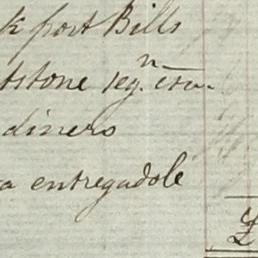 k post Bills
tstone seg.n cta.
dineros
a entregadole
£